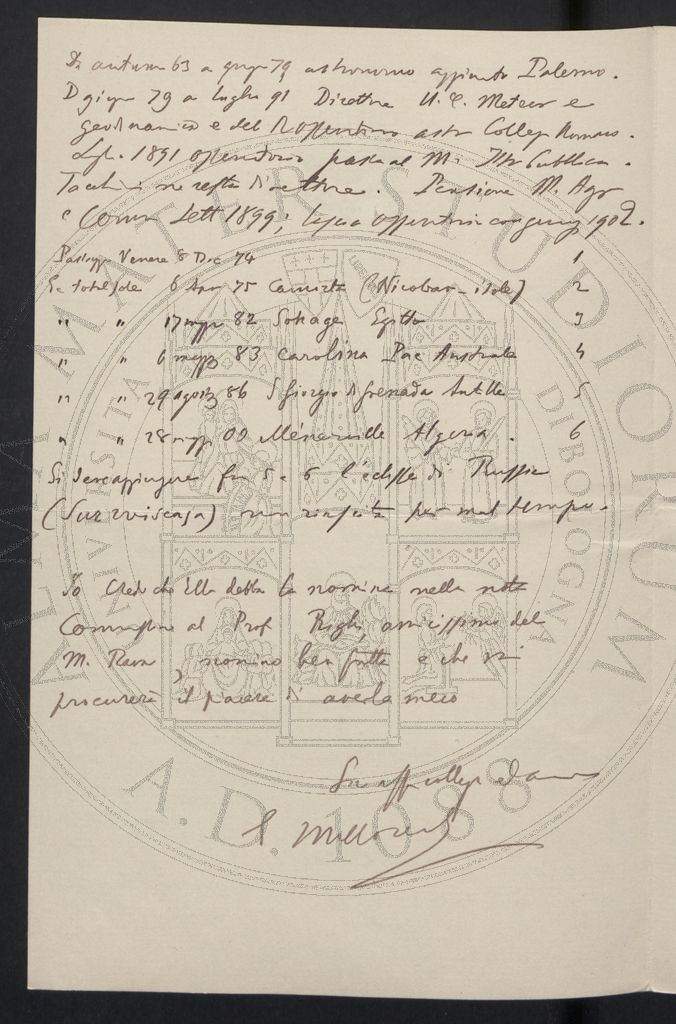 Da autunno 63 a giugno 79 astronomo aggiunto Palermo.
D giugno 79 a luglio 91 Direttore U. C. Meteor e
geodinamico e del R Osservatorio astr Collegio Romano.
Lugl. 1891 osservatorio passa al M. Istr Pubblica.
Tacchini ne resta direttore. Pensione M. Agr
e Comm Sett 1899; lascia osservatorio 1902.
Passaggio Venere 8 Dic 74 1
Ec totale sole 6 Apr 75 Camorta (Nicobar isole) 2
" " 17 magg 82 Sohage Egitto 3
" " 6 magg 83 Carolina Pac Australe 4
" " 29 agosto 86 S Giorgio di Grenada Antille 5
" " 28 magg 00 Ménerville Algeria. 6
Si deve aggiungere fra 5 e 6 l'eclisse di Russia
( ) non riuscita per mal tempo.
Io credo che Ella debba la nomina nella nota
Commissione al Prof Righi, amicissimo del
M. Rava, nomina ben fatta e che mi
procurerà il piacere di averla meco
Suo aff collega ed amico
E Millosevich
ALMA MATER STUDIORUM
UNIVERSITA DI BOLOGNA
A.D. 1088